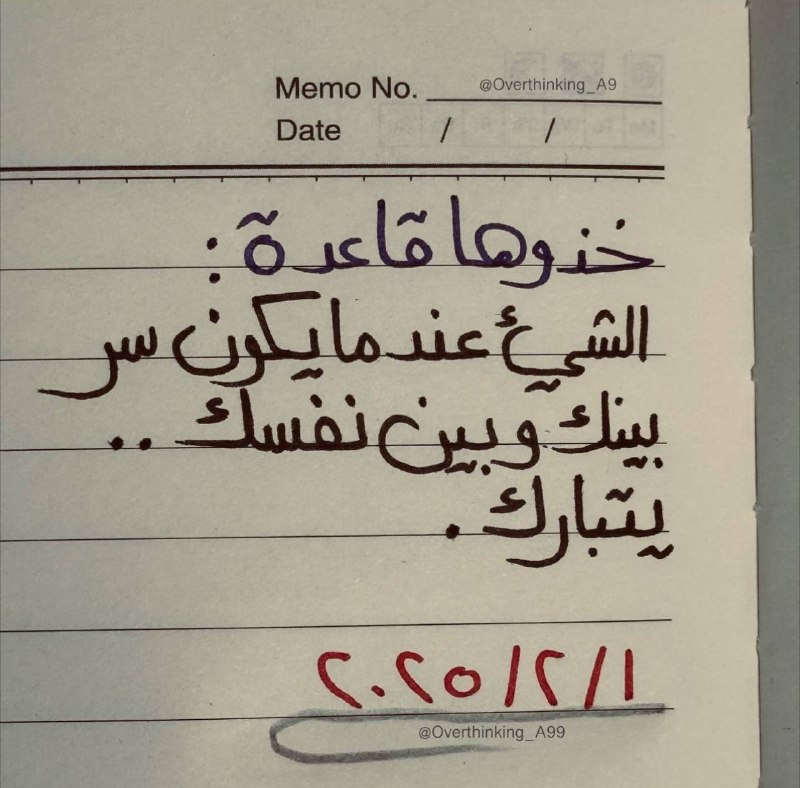 Memo No. @Overthinking_A9
Date / /
خذوها قاعدة :
الشيئ عندما يكون سر
بينك وبين نفسك ..
يتبارك .
٢٠٢٥/٢/١
@Overthinking_A99